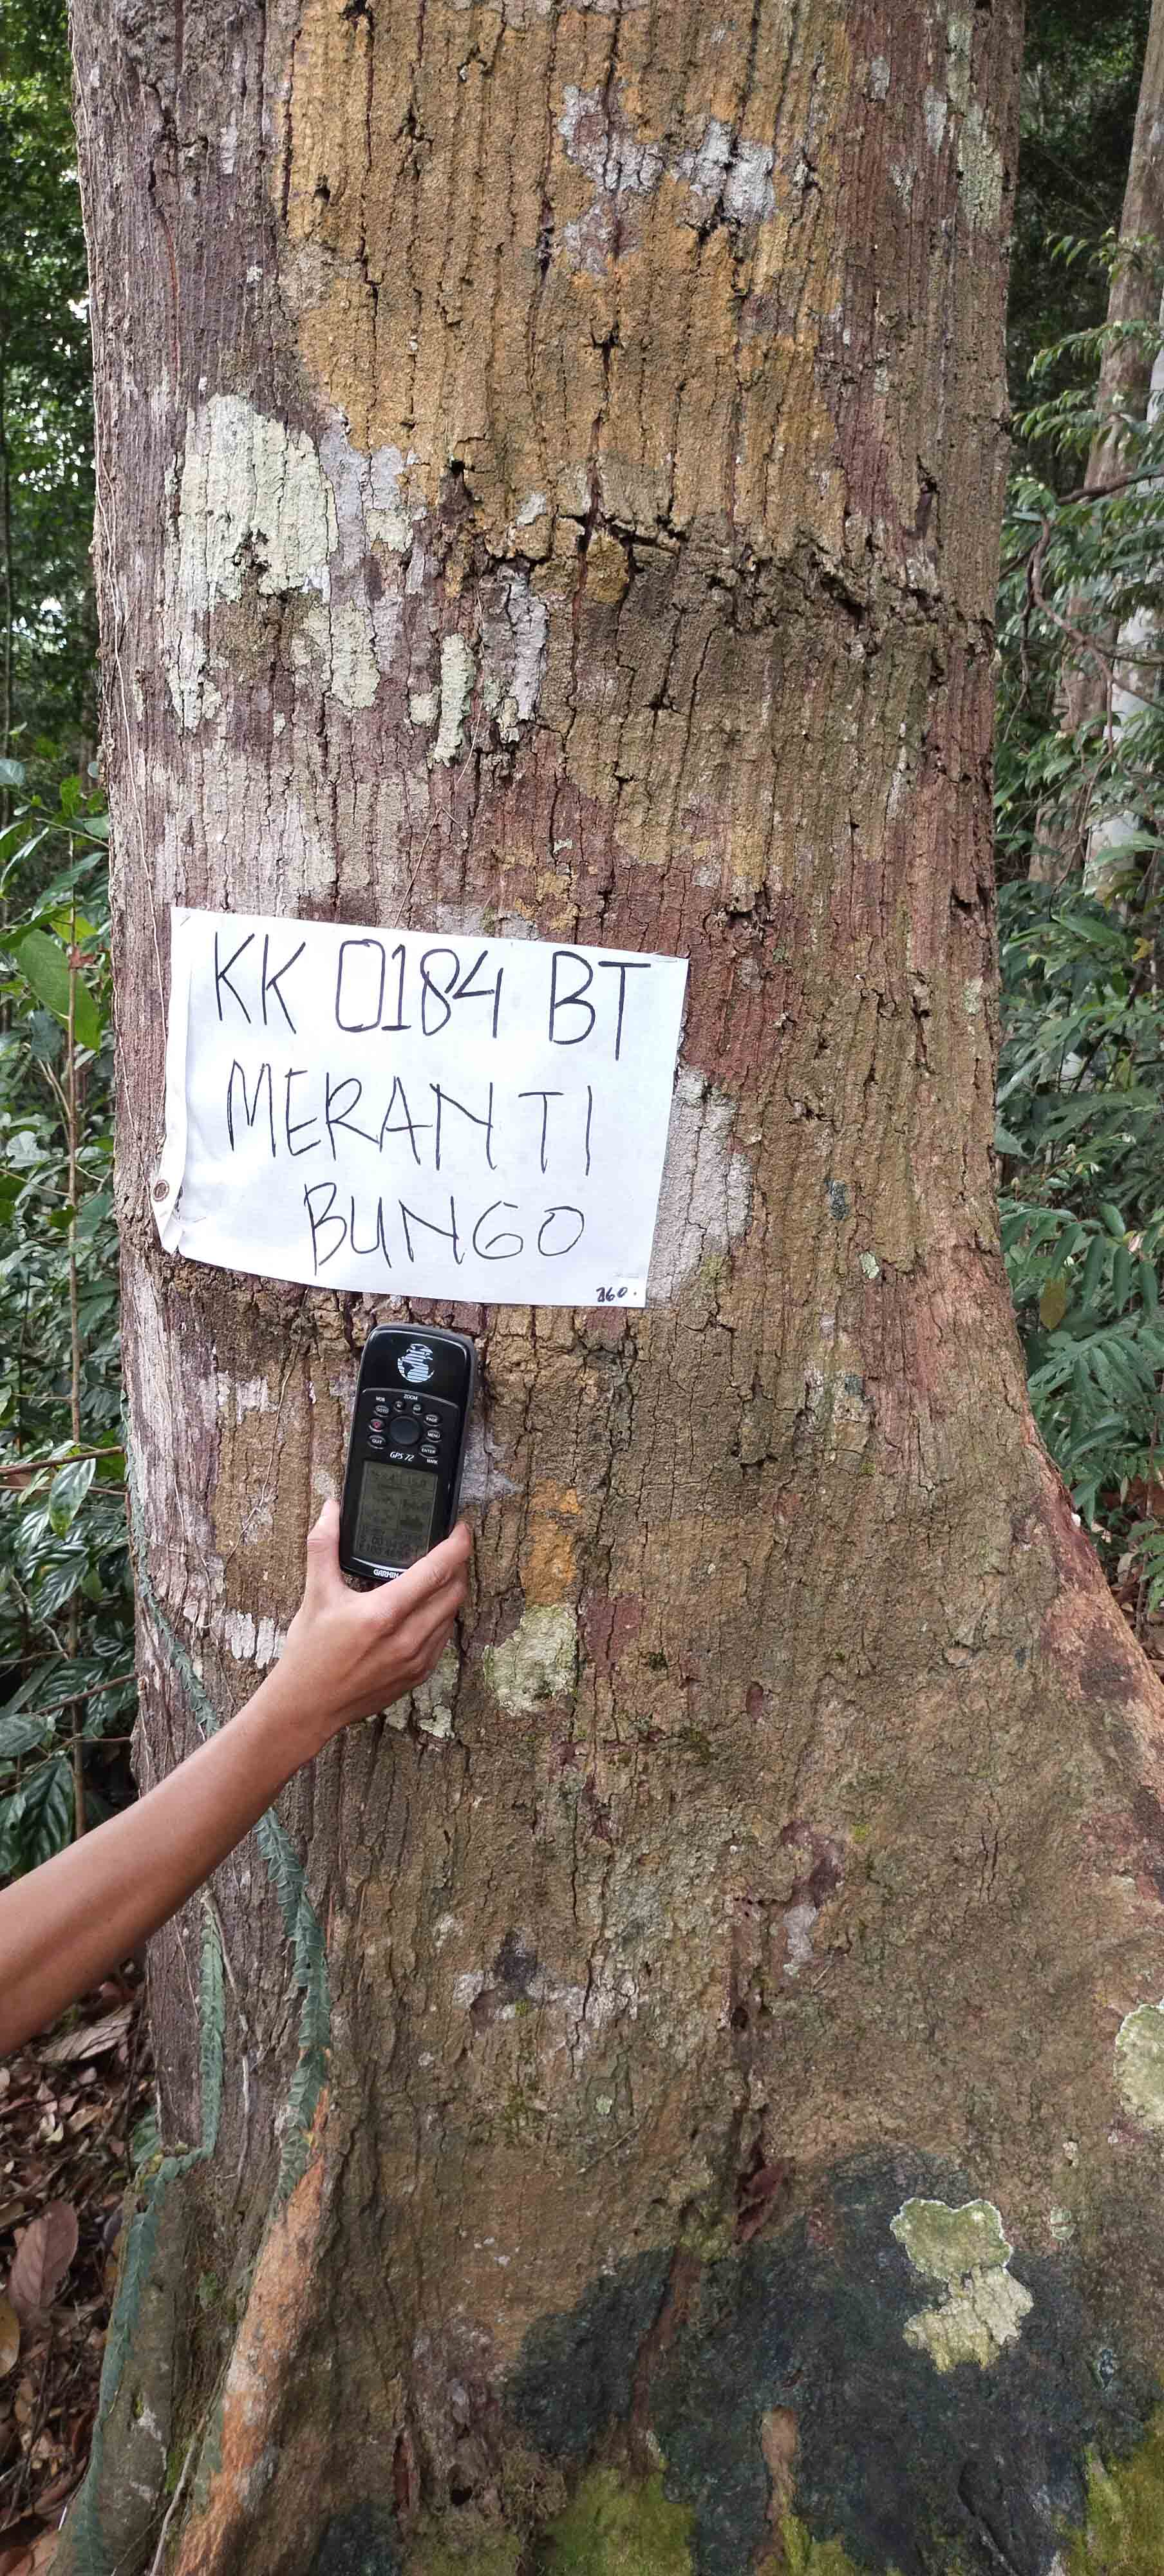 KK 0184 BT
MERANTI
BUNGO
360.
ZOOM
MOB
GOTO
PAGE
MENU
QUIT
ENTER
MARK
GPS 72
GARMIN